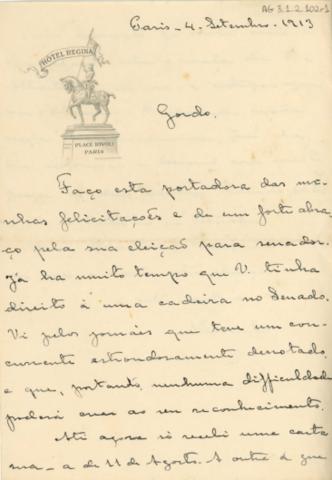 AG 3.1.2.102-1
Paris - 4. Setembro. 1913
HOTEL REGINA
PLACE RIVOLI
PARIS
Gordo.
Faço esta portadora das mi-
nhas felicitações e de um forte abra-
ço pela sua eleição para senador.
Já ha muito tempo que V. tinha
direito à uma cadeira no Senado.
Vi pelos jornaes que teve um con-
currente estrondosamente derrotado
e que, portanto, nenhuma difficuldade
poderá crear ao seu reconhecimento.
Até agora só recebi uma carta
sua - a de 11 de Agosto. A outra á que